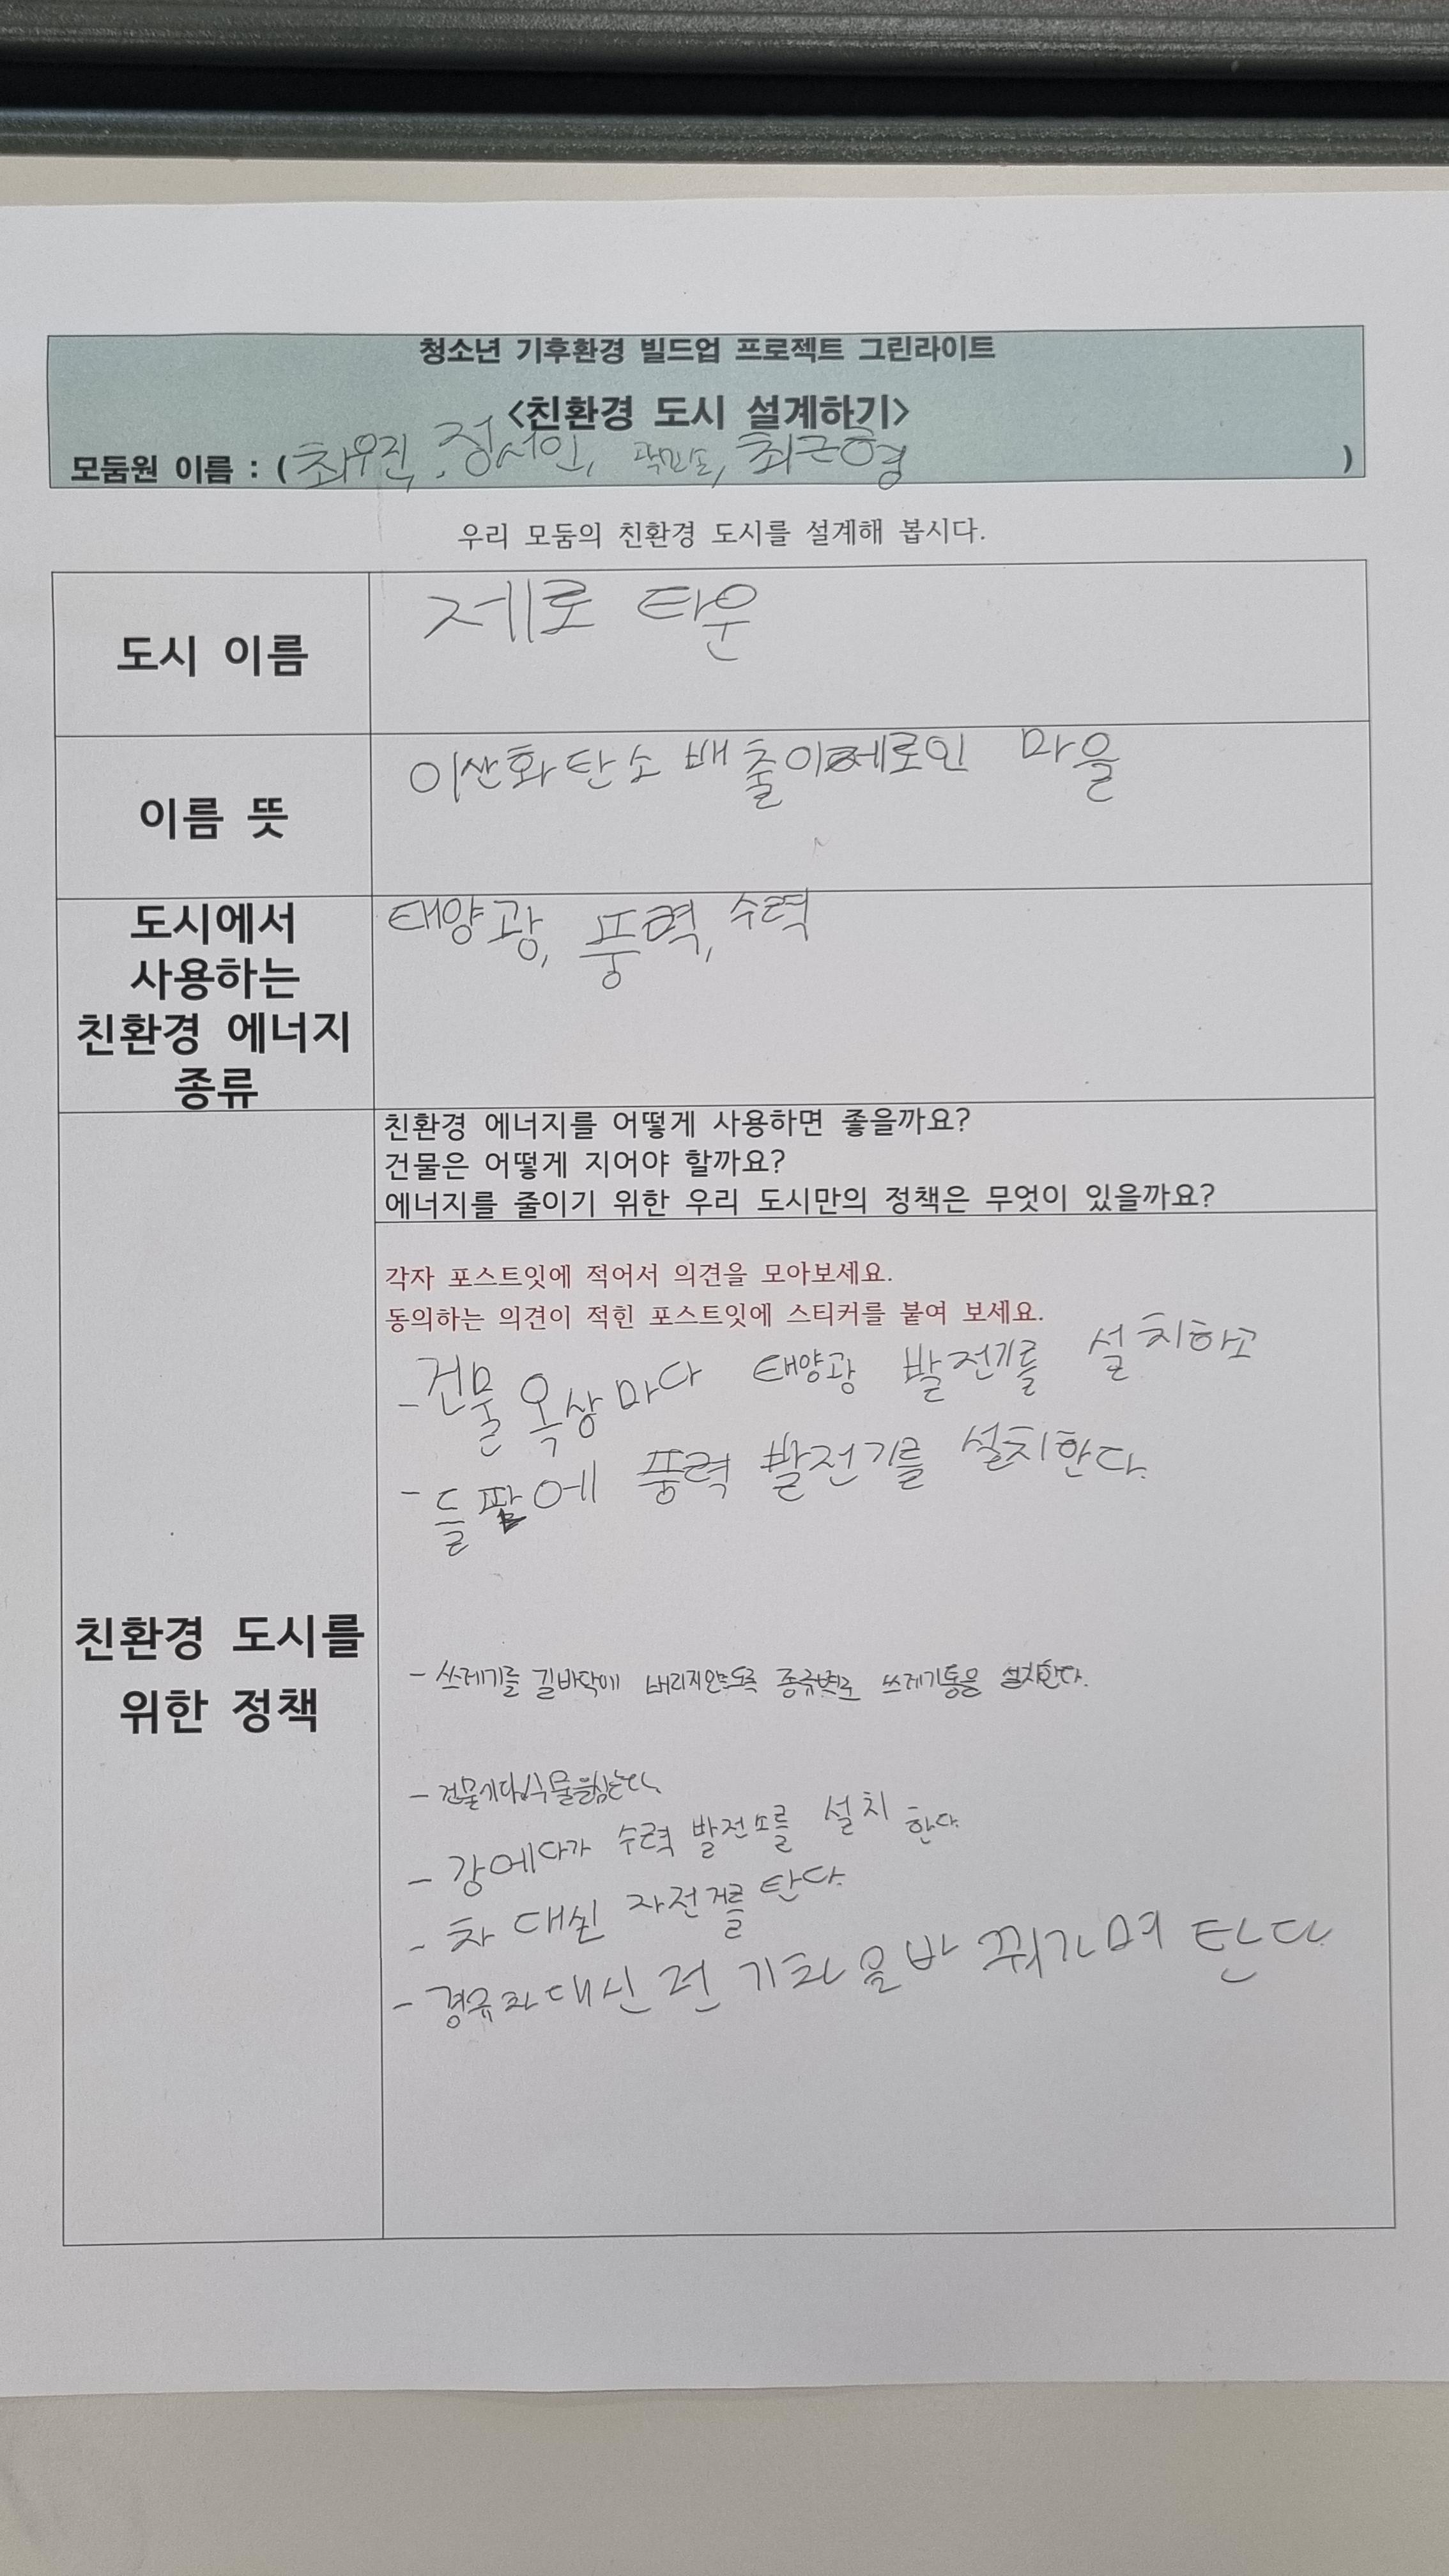 청소년 기후환경 빌드업 프로젝트 그린라이트
<친환경 도시 설계하기>
모둠원 이름 : ( 최우진, 정서인, 최근형 )
우리 모둠의 친환경 도시를 설계해 봅시다.
도시 이름
제로 타운
이름 뜻
이산화탄소 배출이 제로인 마을
도시에서
사용하는
친환경 에너지
종류
태양광, 풍력, 수력
친환경 도시를
위한 정책
친환경 에너지를 어떻게 사용하면 좋을까요?
건물은 어떻게 지어야 할까요?
에너지를 줄이기 위한 우리 도시만의 정책은 무엇이 있을까요?
각자 포스트잇에 적어서 의견을 모아보세요.
동의하는 의견이 적힌 포스트잇에 스티커를 붙여 보세요.
- 건물 옥상마다 태양광 발전기를 설치하고
- 들판에 풍력 발전기를 설치한다.
- 쓰레기를 길바닥에 버리지않도록 종류별로 쓰레기통을 설치한다.
- 식물을심는다.
- 강에다가 수력 발전소를 설치 한다.
- 차 대신 자전거를 탄다.
- 경유차대신 전기차을바꿔가며 탄다.